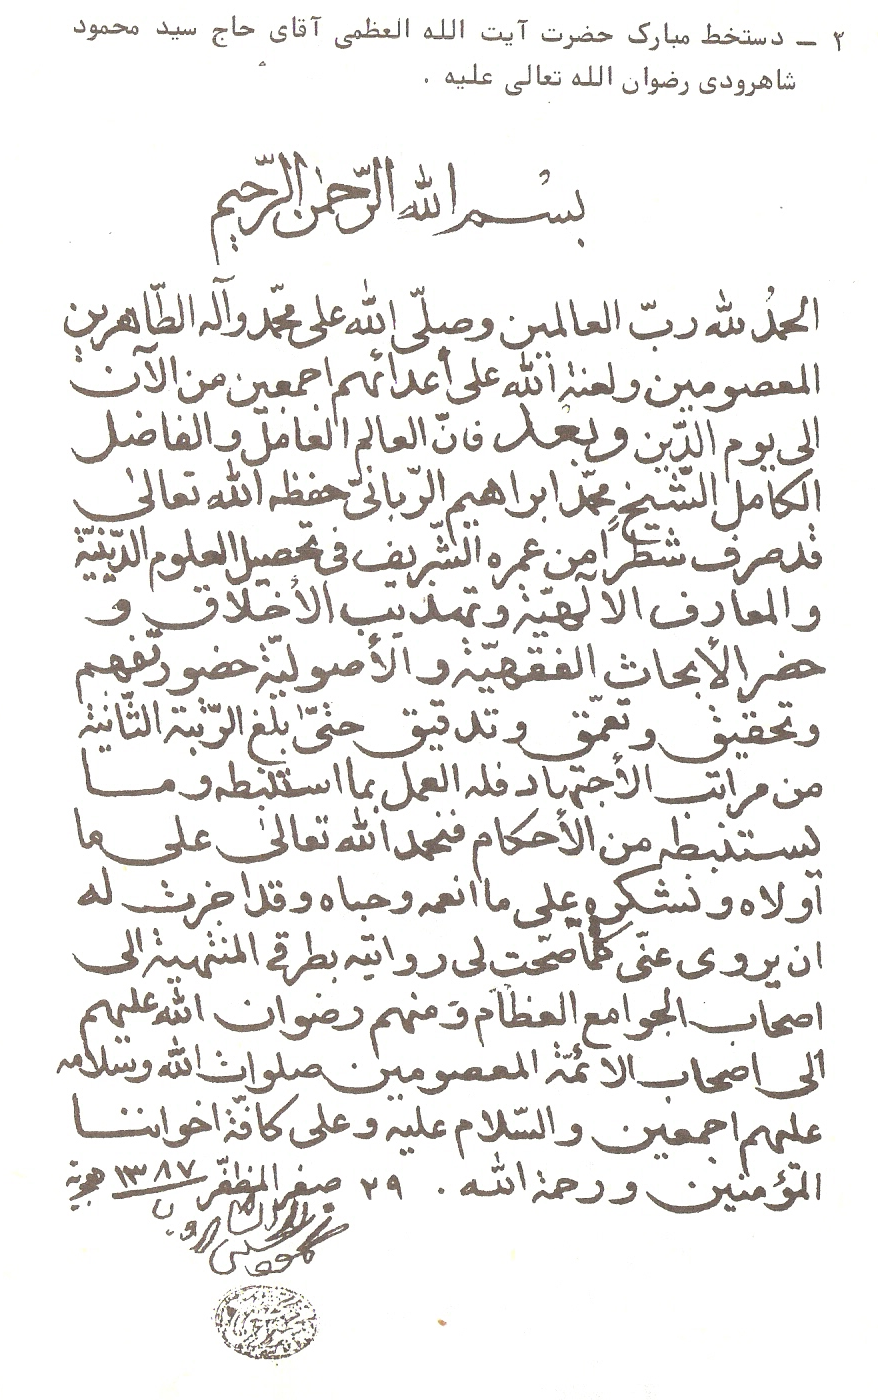 ۳ ــ دستخط مبارک حضرت آیت الله العظمی آقای حاج سید محمود
شاهرودی رضوان الله تعالی علیه .
بسم الله الرّحمٰن الرّحیم
الحمدُ لله ربّ العالمین وصلّی الله علی محّمد وآله الطّاهرین
المعصومین ولعنة الله علی أعدائهم اجمعین من الآن
الی یوم الدّین وبعد فانّ العالم العامل والفاضل
الکامل الشّیخ محمّد ابراهیم الرّبانیّ حفظه الله تعالیٰ
قد صرف شطراً من عمره الشّریف فی تحصیل العلوم الدّینیّة
والمعارف الالٰهیّة وتهذیب الأخلاق و
حضر الأبحاث الفقهیّة والأصولیّة حضور تفهم
وتحقیق وتعمّق وتدقیق حتّیٰ بلغ الرّتبة الثّانیة
من مراتب الأجتهاد فله العمل بما استنبطه وما
یستنبطه من الأحکام فنحمد الله تعالیٰ علی ما
أولاه ونشکره علی ما انعمه وحباه وقد اجزت له
ان یروی عنّی کلّما صحّت لی روایته بطرقی المنتهیة الی
اصحاب الجوامع العظام ومنهم رضوان الله علیهم
الی اصحاب الائمّة المعصومین صلوات الله وسلامه
علیهم اجمعین والسّلام علیه وعلی کافّة اخواننا
المؤمنین ورحمة الله . ۲۹ صفر المظفّر ۱۳۸۷ هجریة